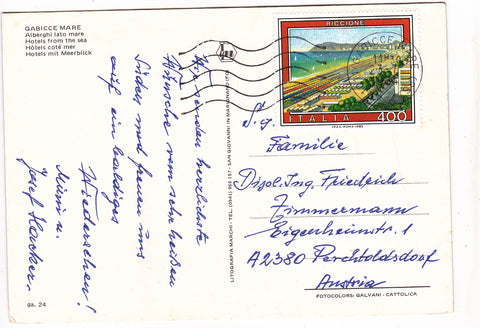 GABICCE MARE
Alberghi lato mare
Hotels from the sea
Hôtels coté mer
Hotels mit Meerblick
Wir senden herzlichste
Wünsche vom sehr heißen
Süden und freuen uns
auf ein baldiges
Wiedersehen!
Mimi u.
Josef
ga. 24
LITOGRAFIA MARCHI - TEL. (0541) 966 157 - SAN GIOVANNI IN MARIGNANO (FO)
RICCIONE
ITALIA 400
S.g.
Familie
Dipl. Ing. Friedrich
Zimmermann
Eigenheimstr. 1
A2380 Perchtoldsdorf
Austria
FOTOCOLORS: GALVANI - CATTOLICA